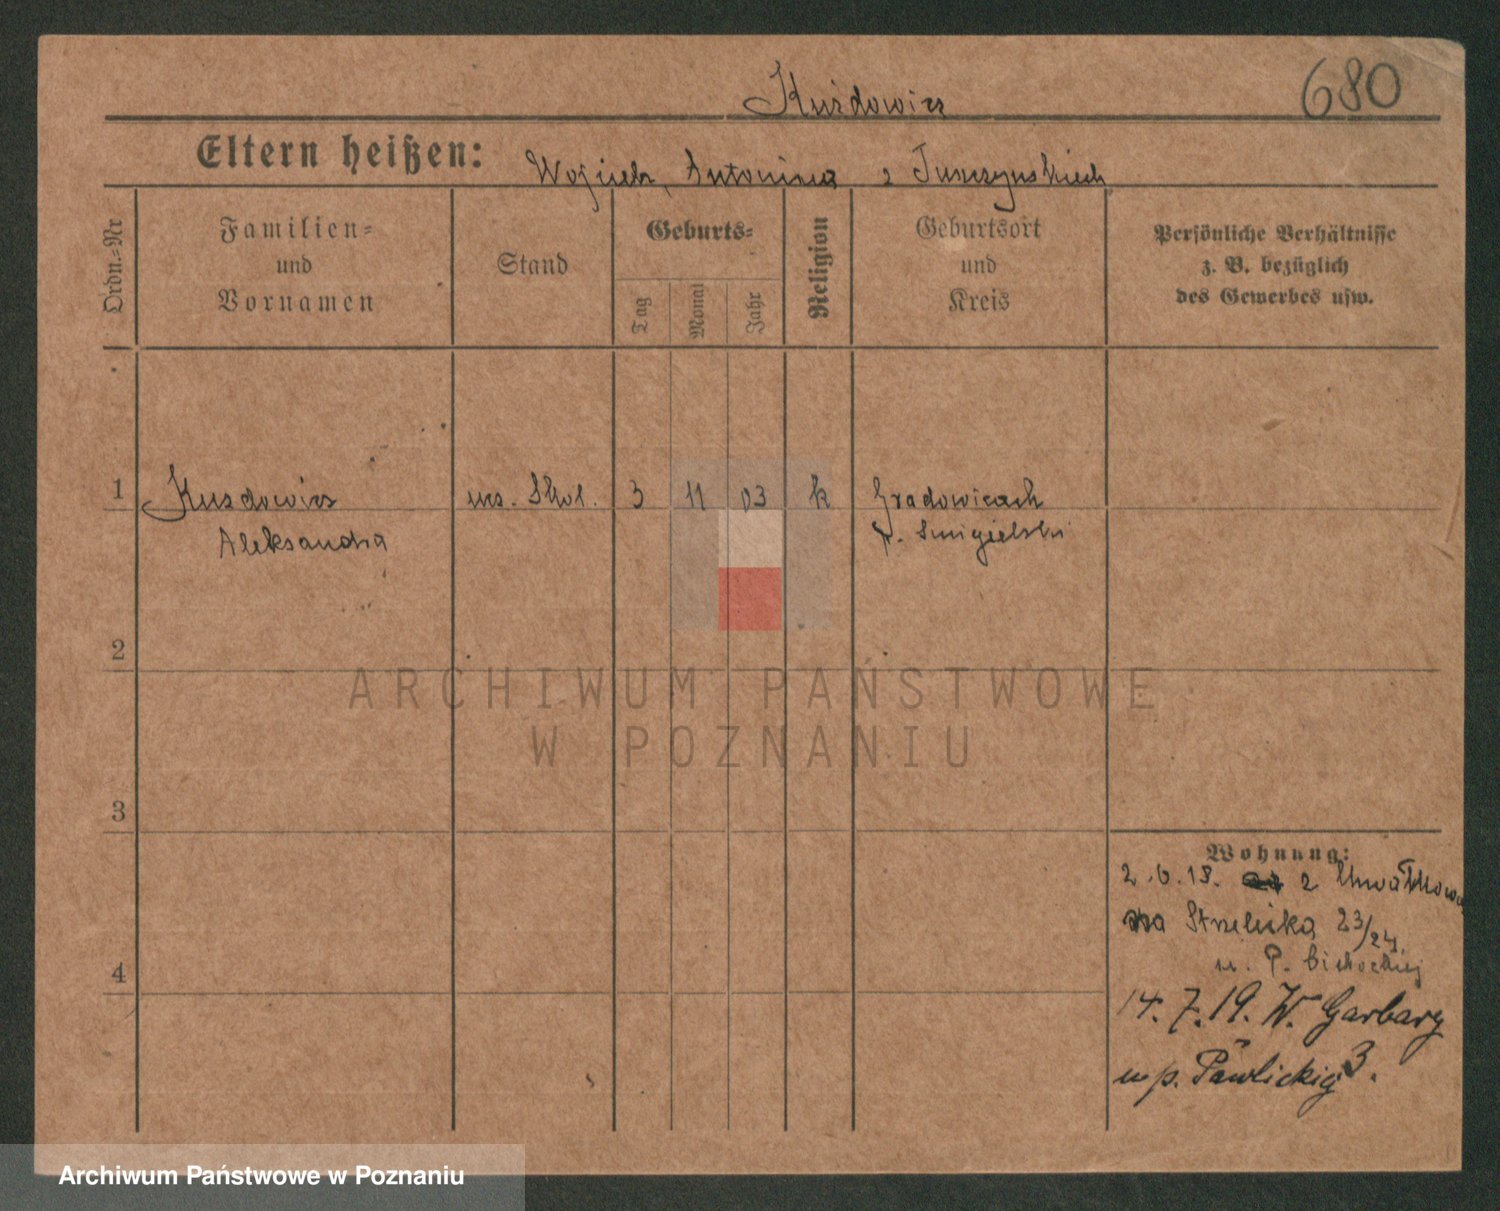 680
Kurdowicz
Eltern heißen: Wojciech, Antonina z
Ordn.-Nr
Familien- und Vornamen
Stand
Geburts-
Tag
Monat
Jahr
Religion
Geburtsort und Kreis
Persönliche Verhältnisse
z. B. bezüglich
des Gewerbes usw.
1 3 11 03 k Gradowicach
Aleksandra p. Smigielski
2
3
4
Wohnung:
2.6.18. 2
na Strzelecka 23/24.
u. P.
14.7.19. W. Garbary
u p. Pawlickiej 3.
ARCHIWUM PAŃSTWOWE
W POZNANIU
Archiwum Państwowe w Poznaniu